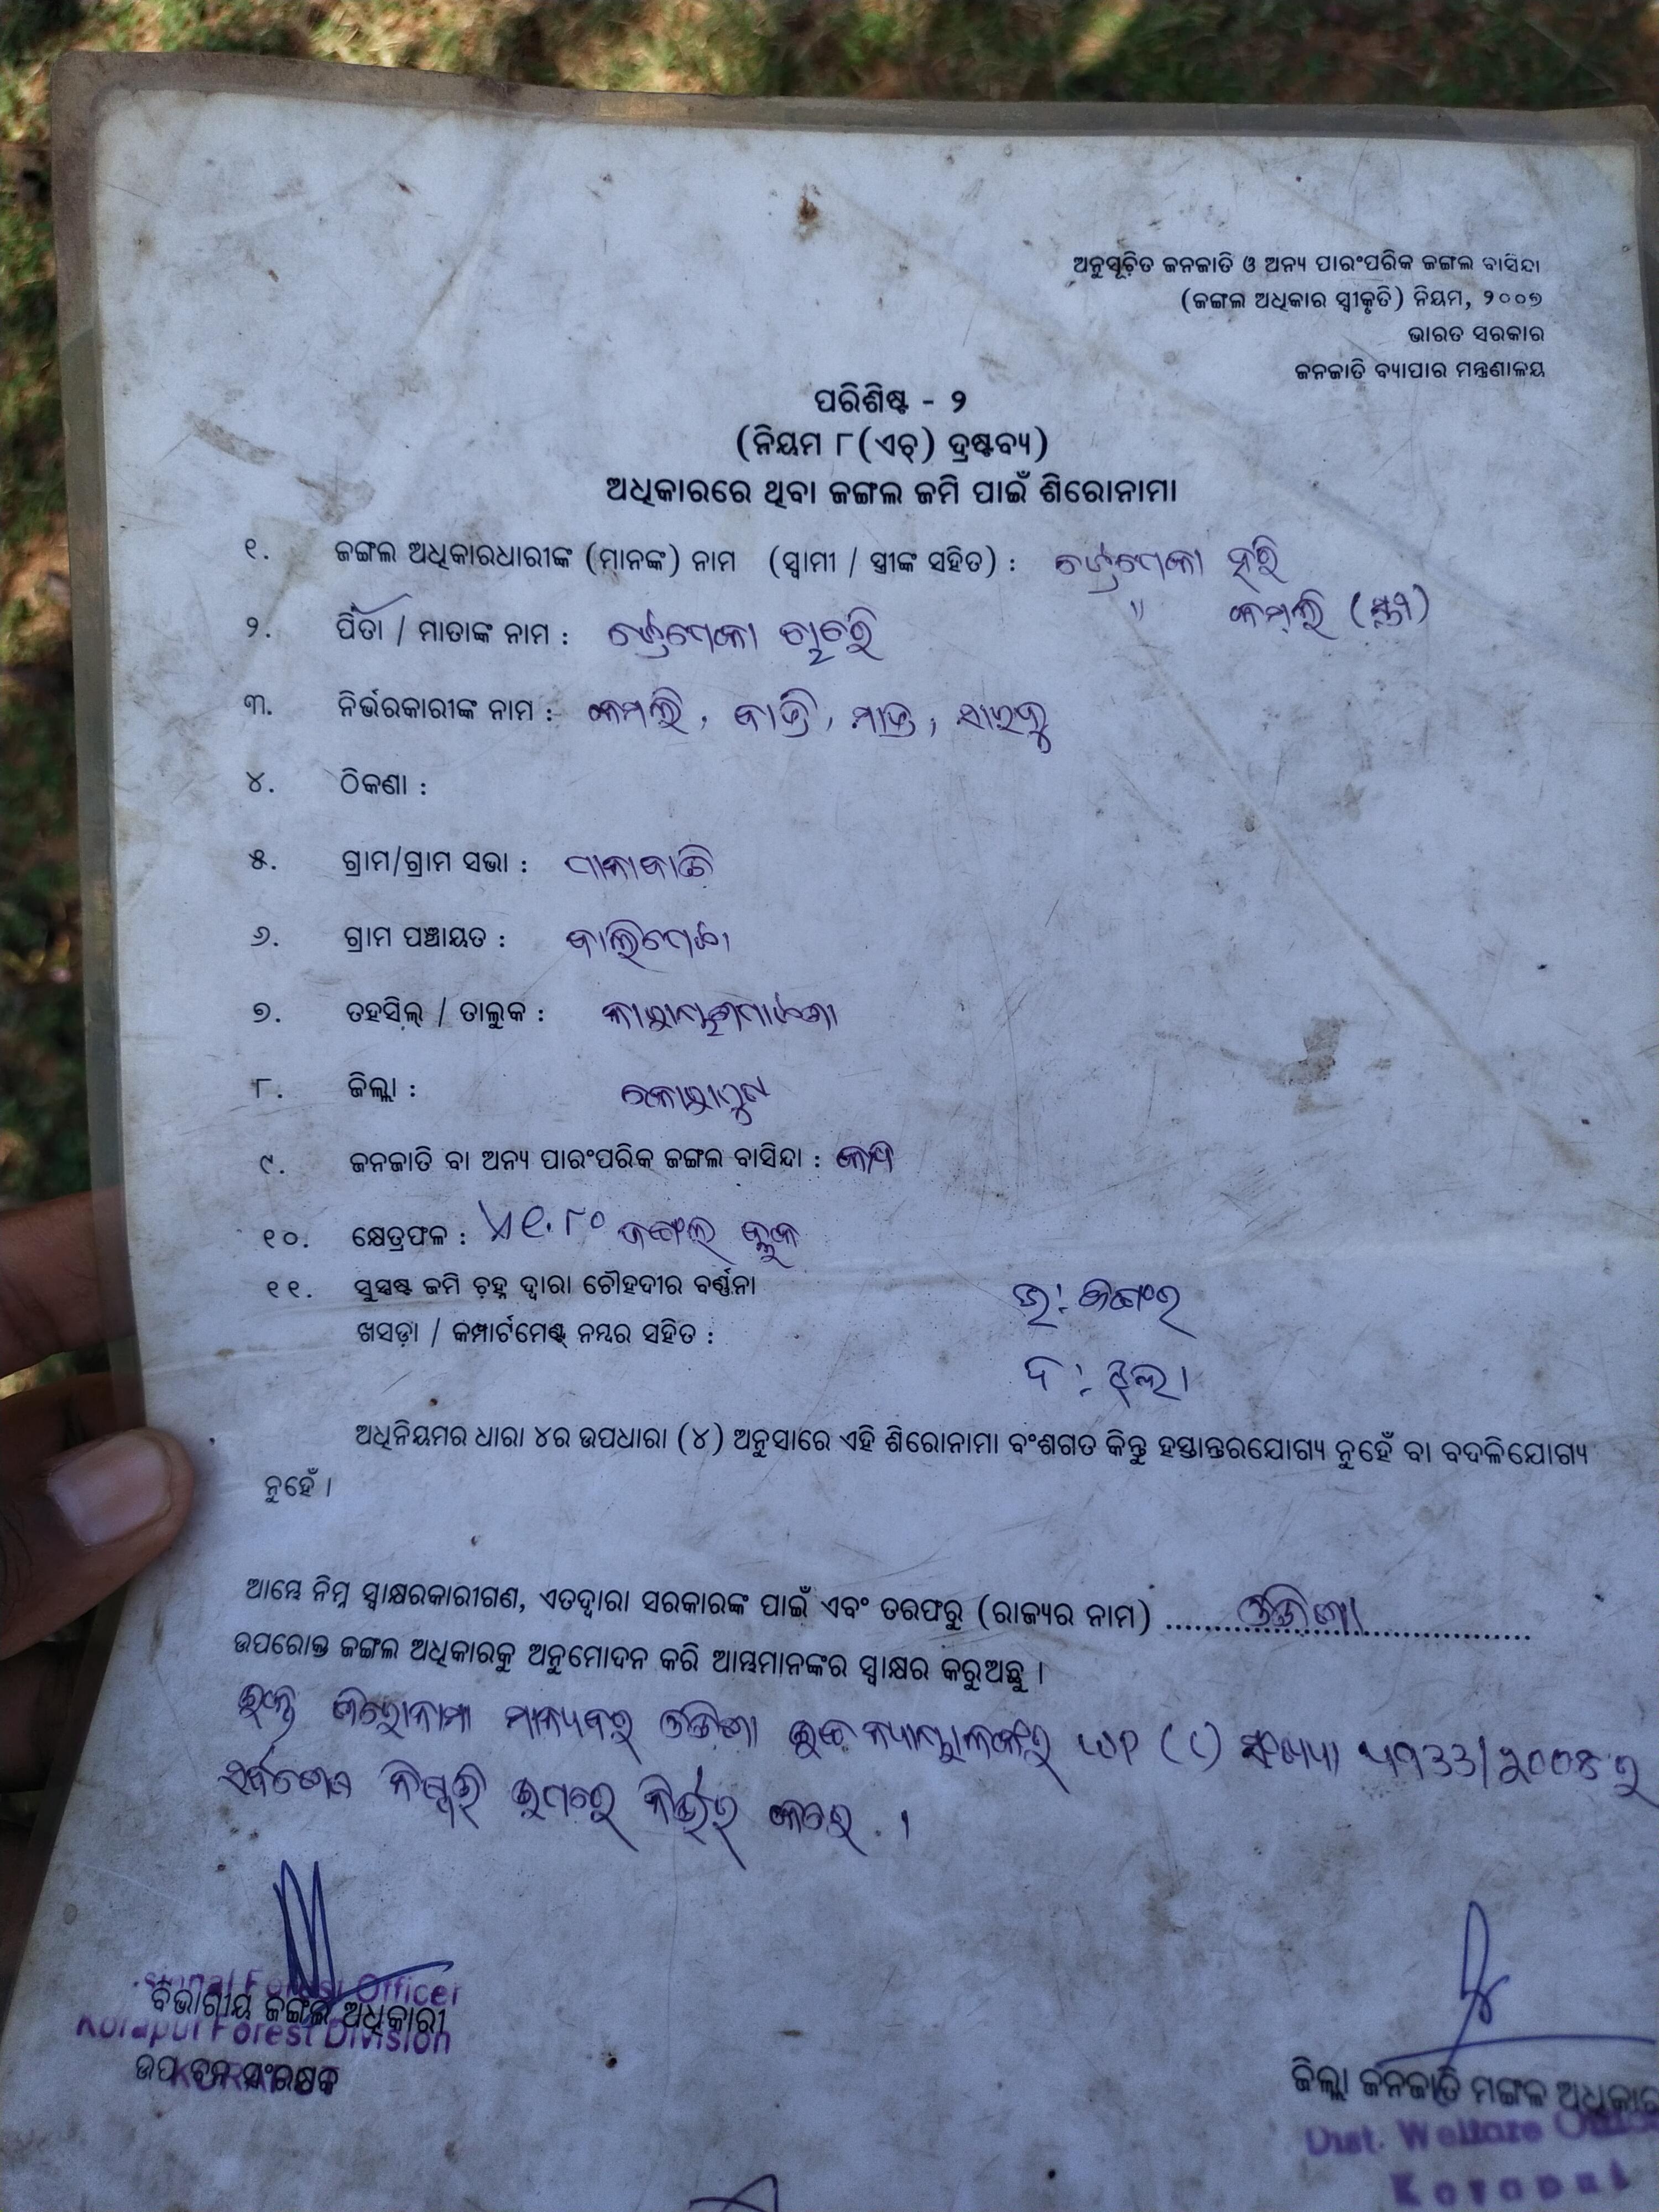 ଅନୁସୂଚିତ ଜନଜାତି ଓ ଅନ୍ୟ ପାରଂପରିକ ଜଙ୍ଗଲ ବାସିନ୍ଦା
(ଜଙ୍ଗଲ ଅଧିକାର ସ୍ୱୀକୃତି) ନିୟମ, ୨୦୦୭
ଭାରତ ସରକାର
ଜନଜାତି ବ୍ୟାପାର ମନ୍ତ୍ରଣାଳୟ
ପରିଶିଷ୍ଟ - ୨
(ନିୟମ ୮(ଏଚ୍) ଦ୍ରଷ୍ଟବ୍ୟ)
ଅଧିକାରରେ ଥିବା ଜଙ୍ଗଲ ଜମି ପାଇଁ ଶିରୋନାମା
୧. ଜଙ୍ଗଲ ଅଧିକାରଧାରୀଙ୍କ (ମାନଙ୍କ) ନାମ (ସ୍ୱାମୀ / ସ୍ତ୍ରୀଙ୍କ ସହିତ) : ହରି
" କମଲି (ସ୍ତ୍ରୀ)
୨. ପିତା / ମାତାଙ୍କ ନାମ :
୩. ନିର୍ଭରକାରୀଙ୍କ ନାମ : କମଲି,
୪. ଠିକଣା :
୫. ଗ୍ରାମ/ଗ୍ରାମ ସଭା :
୬. ଗ୍ରାମ ପଞ୍ଚାୟତ : ବାଲିପେଟା
୭. ତହସିଲ୍ / ତାଲୁକ : ନାରାୟଣପାଟଣା
୮. ଜିଲ୍ଲା : କୋରାପୁଟ
୯. ଜନଜାତି ବା ଅନ୍ୟ ପାରଂପରିକ ଜଙ୍ଗଲ ବାସିନ୍ଦା : କୋନ୍ଧ
୧୦. କ୍ଷେତ୍ରଫଳ : ଏ୧.୮୦ ଜଙ୍ଗଲ ବ୍ଲକ
୧୧. ସୁସ୍ପଷ୍ଟ ଜମି ଚିହ୍ନ ଦ୍ୱାରା ଚୌହଦୀର ବର୍ଣ୍ଣନା ଉ: ଜଙ୍ଗଲ
ଖସଡ଼ା / କମ୍ପାର୍ଟମେଣ୍ଟ୍ ନମ୍ବର ସହିତ :
ଦ:
ଅଧିନିୟମର ଧାରା ୪ର ଉପଧାରା (୪) ଅନୁସାରେ ଏହି ଶିରୋନାମା ବଂଶଗତ କିନ୍ତୁ ହସ୍ତାନ୍ତରଯୋଗ୍ୟ ନୁହେଁ ବା ବଦଳିଯୋଗ୍ୟ
ନୁହେଁ ।
ଆମ୍ଭେ ନିମ୍ନ ସ୍ୱାକ୍ଷରକାରୀଗଣ, ଏତଦ୍ୱାରା ସରକାରଙ୍କ ପାଇଁ ଏବଂ ତରଫରୁ (ରାଜ୍ୟର ନାମ) ..... ଓଡ଼ିଶା .....
ଉପରୋକ୍ତ ଜଙ୍ଗଲ ଅଧିକାରକୁ ଅନୁମୋଦନ କରି ଆମ୍ଭମାନଙ୍କର ସ୍ୱାକ୍ଷର କରୁଅଛୁ ।
ଉକ୍ତ ଶିରୋନାମା ମାନ୍ୟବର ଓଡ଼ିଶା ଉଚ୍ଚ ନ୍ୟାୟାଳୟଙ୍କର WP (C) ସଂଖ୍ୟା ୪୯୩୩/୨୦୦୮ ର
ସର୍ବଶେଷ ନିଷ୍ପତ୍ତି ଉପରେ ନିର୍ଭର କରେ ।
Forest Officer
ବିଭାଗୀୟ ଜଙ୍ଗଲ ଅଧିକାରୀ
Koraput Forest Division
ଉପ ବନ ସଂରକ୍ଷକ
ଜିଲ୍ଲା ଜନଜାତି ମଙ୍ଗଳ
Dist. Welfare
Koraput